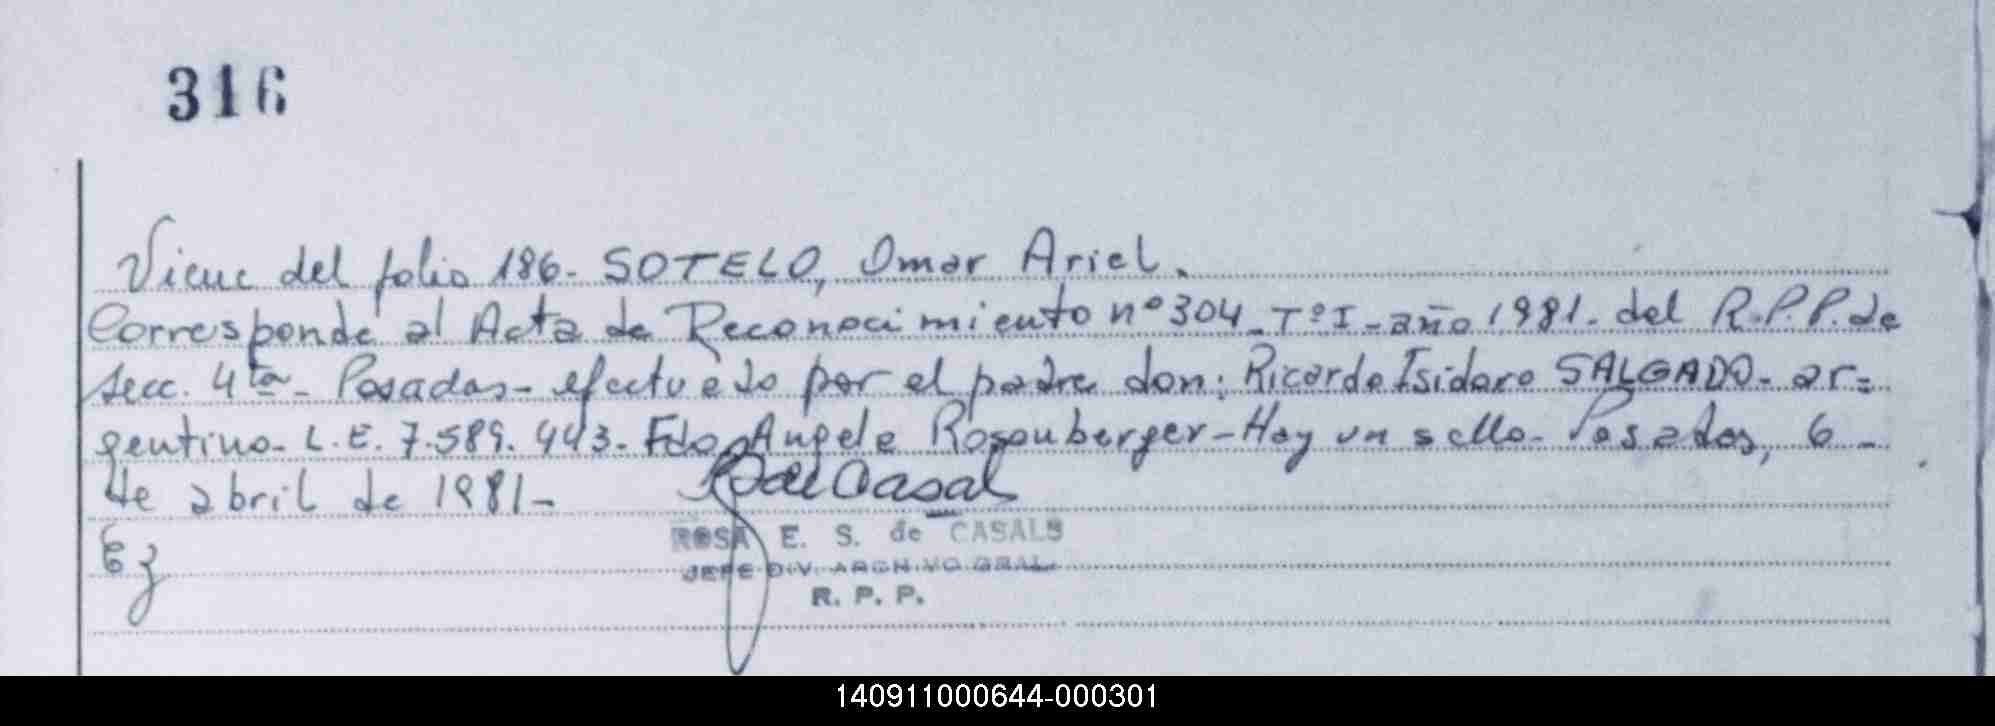 316
Viene del folio 186- SOTELO, Omar Ariel.
Corresponde al Acta de Reconocimiento nº 304- Tº I- año 1981- del R.P.P. de
secc. 4ta- Posadas- efectuado por el padre don: Ricardo Isidoro SALGADO- ar=
gentino- L.E. 7.589.443- Fdo Angela Rosenberger- Hay un sello- Posadas, 6-
de abril de 1981-
ROSA E. S. de CASALS
JEFE DIV. ARCHIVO GRAL.
R. P. P.
140911000644-000301